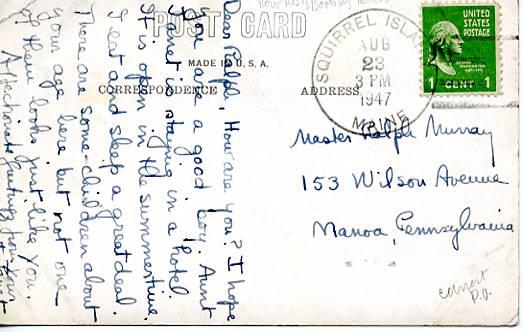 POST CARD
MADE IN U. S. A.
CORRESPONDENCE
ADDRESS
SQUIRREL ISLAND
AUG
23
3 PM
1947
MAINE
UNITED
STATES
POSTAGE
1 CENT 1
Master Ralph Murray
153 Wilson Avenue
Manoa, Pennsylvania
P.O.
Dear Ralph, How are you? I hope
you are a good boy. Aunt
Janet is staying in a hotel.
It is open in the summertime.
I eat and sleep a great deal.
There are some children about
your age here but not one
of them looks just like you.
Affectionate greetings from your